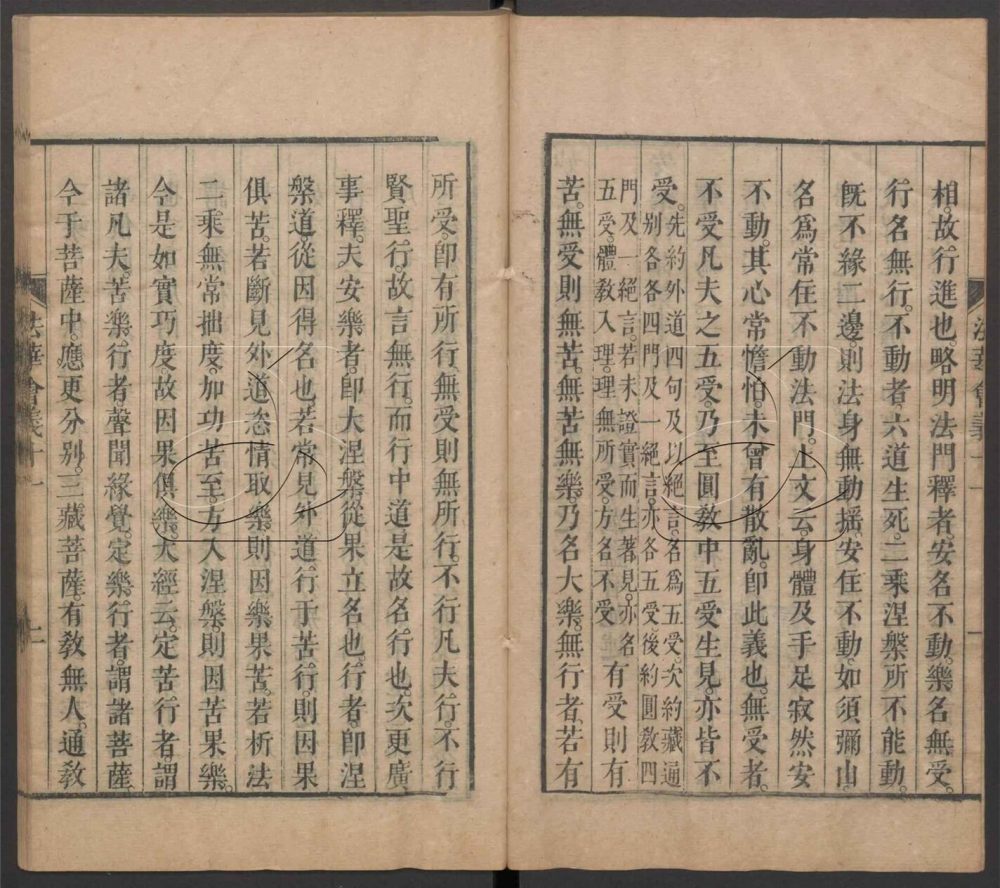 相。故。行進也。略明法門釋者。安名不動。樂名無受。
行名無行。不動者六道生死。二乘涅槃所不能動。
既不緣二邊。則法身無動搖。安住不動。如須彌山。
名為常住不動法門。上文云。身體及手足寂然安
不動。其心常憺怕。未曾有散亂。即此義也。無受者。
不受凡夫之五受。乃至圓教中五受生見。亦皆不
受。先約外道四句及以絕言。名為五受。次約藏通
別各各四門及一絕言。亦各五受後約圓教四
門及一絕言。若未證實而生著見。亦名
五受體教入理。理無所受。方名不受
有受則有
苦。無受則無苦。無苦無樂。乃名大樂。無行者。若有
法華會義十一
一
所受。即有所行。無受則無所行。不行凡夫行。不行
賢聖行。故言無行。而行中道是故名行也。次更廣
事釋。夫安樂者。即大涅槃。從果立名也。行者。即涅
槃道。從因得名也若常見外道。行于苦行。則因果
俱苦。若斷見外道恣情取樂。則因樂果苦。若析法
二乘無常拙度。加功苦至。方入涅槃。則因苦果樂。
今是如實巧度。故因果俱樂。大經云。定苦。行者謂
諸凡夫。苦樂。行者聲聞緣覺。定樂。行者。謂諸菩薩
今于菩薩中。應更分別。三藏菩薩。有教無人。通教
法華會義十一